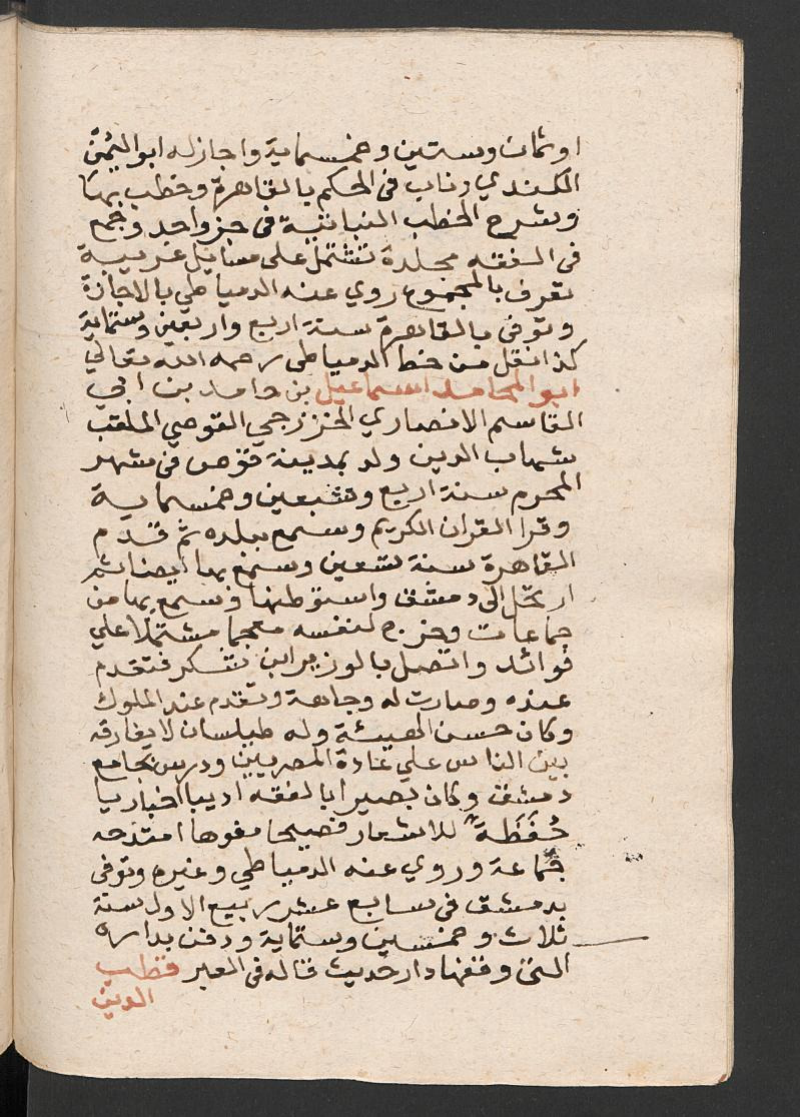 او ثمان وستين وخمسماية واجاز له ابو اليُمْن
الكندي وناب في الحكم بالقاهرة وخطب بها
وشرح الخطب النباتية في جزو احد وجمع
في الفقه مجلدة تشتمل على مسايل غريبة
تعرف بالمجموع روي عنه الدمياطي بالاجازة
وتوفى بالقاهرة سنة اربع واربعين وستماية
كذا نقل من خط الدمياطى رحمه الله تعالي
ابو المحامد اسماعيل بن حامد بن ابي
القاسم الانصاري الخزرجي القوصي الملقب
شهاب الدين ولد بمدينة قوص في شهر
المحرم سنة اربع وسبعين وخمسماية
وقرا القران الكريم وسمع ببلده ثم قدم
القاهرة سنة تسعين وسمع بها ايضا ثم
ارتحل الى دمشق واستوطنها وسمع بها من
جماعات وخرج لنفسه معجما مشتملا علي
فوائد واتصل بالوزير ابن شكر فتقدم
عنده وصارت له وجاهة وتقدم عند الملوك
وكان حسن الهيئة وله طيلسان لا يفارقه
بين الناس علي عادة المصريين ودرس بجامع
دمشق وكان بصيرا بالفقه اديبا اخباريا
حُفَظَة للاشعار فصيحا مفوها امتدحه
جماعة وروي عنه الدمياطي وغيره وتوفى
بدمشق فى سابع عشر ربيع الاول سنة
ثلاث وخمسين وستماية ودفن بداره
التى وقفها دار حديث قاله في العبر قطب
الدين